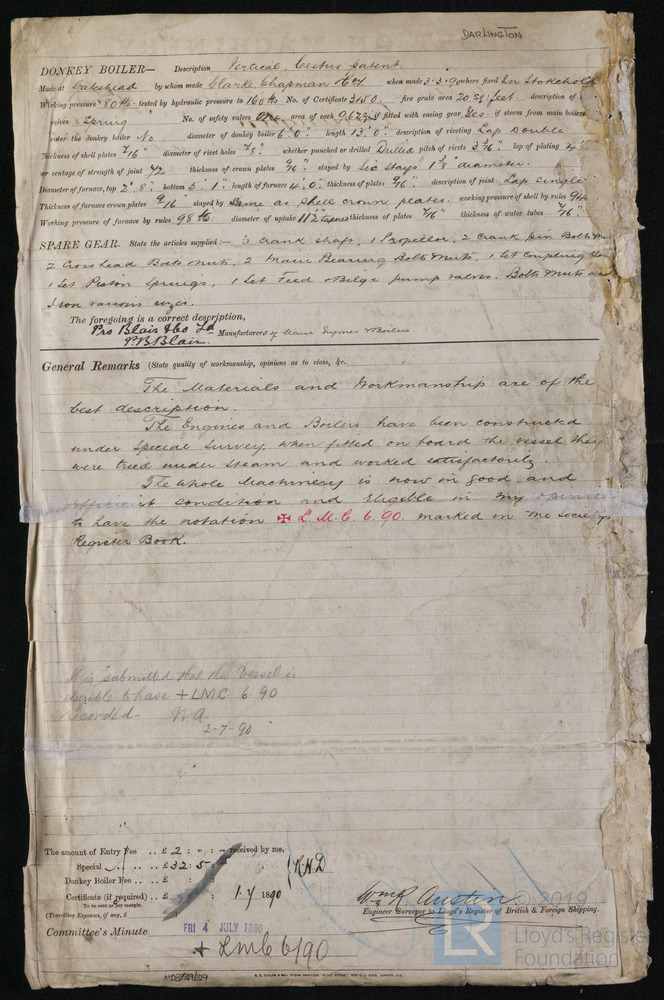 DARLINGTON
DONKEY BOILER— Description Vertical, Cestus patent
Made at Gateshead by whom made Clarke Chapman & Co when made 3·3·90 where fixed In Stokehold
Working pressure 80 lbs tested by hydraulic pressure to 160 lbs No. of Certificate 3150 fire grate area 20 sq: feet description of
valves Spring No. of safety valves One area of each 9.62 sq" if fitted with easing gear Yes if steam from main boilers
enter the donkey boiler No diameter of donkey boiler 6' 0" length 13' 0" description of riveting Lap Double
Thickness of shell plates 7/16" diameter of rivet holes 7/8" whether punched or drilled Drilled pitch of rivets 3 3/16" lap of plating 4
per centage of strength of joint 72 thickness of crown plates 9/16" stayed by Six stays 1 7/8" diameter.
Diameter of furnace, top 2' 8" bottom 5' 1" length of furnace 4' 0" thickness of plates 9/16" description of joint Lap Single
Thickness of furnace crown plates 9/16" stayed by Same as shell crown plates. working pressure of shell by rules
Working pressure of furnace by rules 98 lbs: diameter of uptake 11 1/2 tapered thickness of plates 7/16" thickness of water tubes 7/16"
SPARE GEAR. State the articles supplied:— 3 crank shaft, 1 Propeller, 2 Crank pin Bolts & Nuts
2 Crosshead Bolts & nuts, 2 Main Bearing Bolts & nuts, 1 Set Coupling
1 Set Piston Springs, 1 Set Feed & Bilge pump valves. Bolts & nuts and
Iron various sizes.
The foregoing is a correct description,
Pro Blair & Co Ld Manufacturers of Main Engines & Boilers
P.B. Blair.
General Remarks (State quality of workmanship, opinions as to class, &c.
The Materials and Workmanship are of the
best description.
The Engines and Boilers have been constructed
under Special Survey, when fitted on board the vessel they
were tried under steam and worked satisfactorily.
The whole Machinery is now in good and
efficient condition and Eligible in my opinion
to have the notation ✠ L.M.C. 6.90. marked in the Society's
Register Book.
It is submitted that this Vessel is
eligible to have + LMC 6 90
recorded
2-7-90
The amount of Entry Fee .. £ 2 : " : " received by me,
Special .. .. £ 32 : 5 : "
R.N.D
Donkey Boiler Fee .. .. £ : :
Certificate (if required) .. £ : : 1.7 1890
To be sent as per margin.
(Travelling Expenses, if any, £
Wm R. Austen
Engineer Surveyor to Lloyd's Register of British & Foreign Shipping.
Committee's Minute
FRI 4 JULY 1890
+ Lmc 6/90
© 2019
LR
Lloyd's Register
Foundation